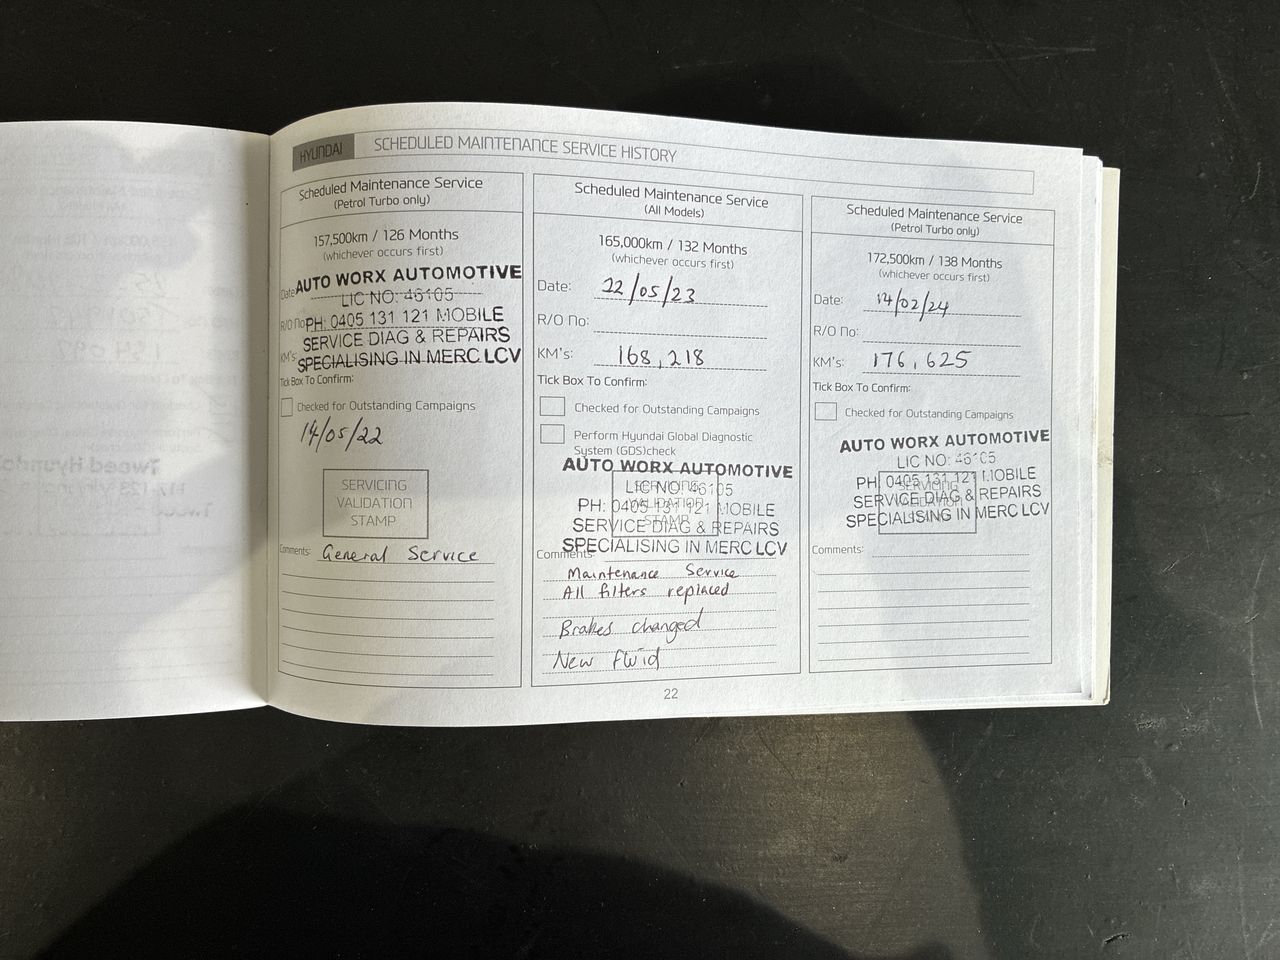 HYUNDAI
SCHEDULED MAINTENANCE SERVICE HISTORY
Scheduled Maintenance Service
(Petrol Turbo only)
157,500km / 126 Months
(whichever occurs first)
Date:
AUTO WORX AUTOMOTIVE
LIC NO: 46105
R/O No:
PH: 0405 131 121 MOBILE
SERVICE DIAG & REPAIRS
KM's:
SPECIALISING IN MERC LCV
Tick Box To Confirm:
Checked for Outstanding Campaigns
14/05/22
SERVICING
VALIDATION
STAMP
Comments: General Service
Scheduled Maintenance Service
(All Models)
165,000km / 132 Months
(whichever occurs first)
Date: 22/05/23
R/O No:
KM's: 168,218
Tick Box To Confirm:
Checked for Outstanding Campaigns
Perform Hyundai Global Diagnostic
System (GDS)check
AUTO WORX AUTOMOTIVE
LIC NO: 46105
PH: 0405 131 121 MOBILE
SERVICE DIAG & REPAIRS
SPECIALISING IN MERC LCV
SERVICING
VALIDATION
STAMP
Comments:
Maintenance Service
All filters replaced
Brakes changed
New fluid
Scheduled Maintenance Service
(Petrol Turbo only)
172,500km / 138 Months
(whichever occurs first)
Date: 14/02/24
R/O No:
KM's: 176,625
Tick Box To Confirm:
Checked for Outstanding Campaigns
AUTO WORX AUTOMOTIVE
LIC NO: 46105
PH: 0405 131 121 MOBILE
SERVICE DIAG & REPAIRS
SPECIALISING IN MERC LCV
SERVICING
VALIDATION
Comments:
22